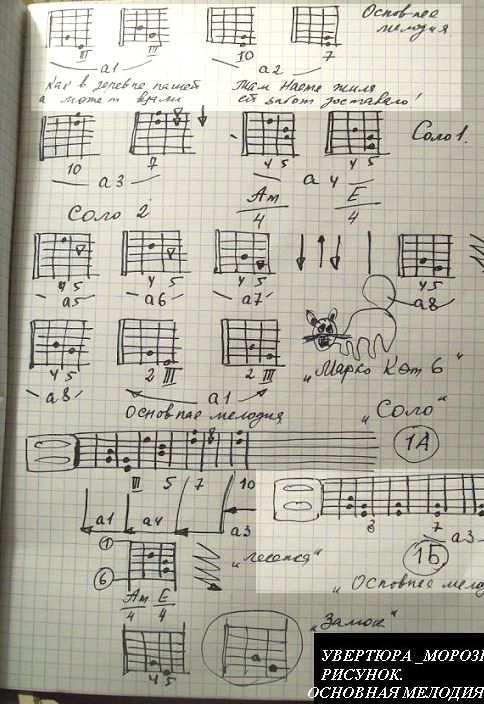 Основнае
мелодия.
III III 10 7
a1 a2
Как в деревне нашей Там Настя жила
а может врали ей забот доставало!
Соло 1.
10 7 4 5 4 5
a3 a 4
Am E
4 4
Соло 2
4 5 4 5 4 5 4 5
a5 a6 a7 a8
4 5 2 III 2 III
a8 a1
„Марко Кот 6"
Основнае мелодия
„Соло"
1А
III 5 7 10
a1 a4 a3
3 7
a3
1Б
1
6
„лесенка"
„Основнее мело
Am E
4 4
„Замок"
4 5
a
УВЕРТЮРА _МОРОЗ
РИСУНОК.
ОСНОВНАЯ МЕЛОДИЯ